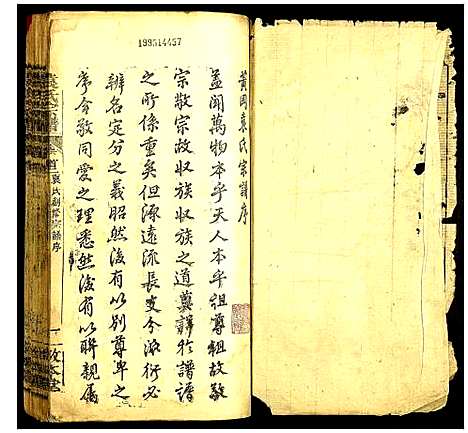 199514457
黄冈袁氏宗譜序
蓋聞萬物本乎天人本乎祖尊祖故敬
宗敬宗故收族收族之道莫詳於譜譜
之所係重矣但源遠流長支分派衍必
辨名定分之義昭然後有以別尊卑之
序合敬同愛之理悉然後有以聯親屬
袁氏創修宗譜序